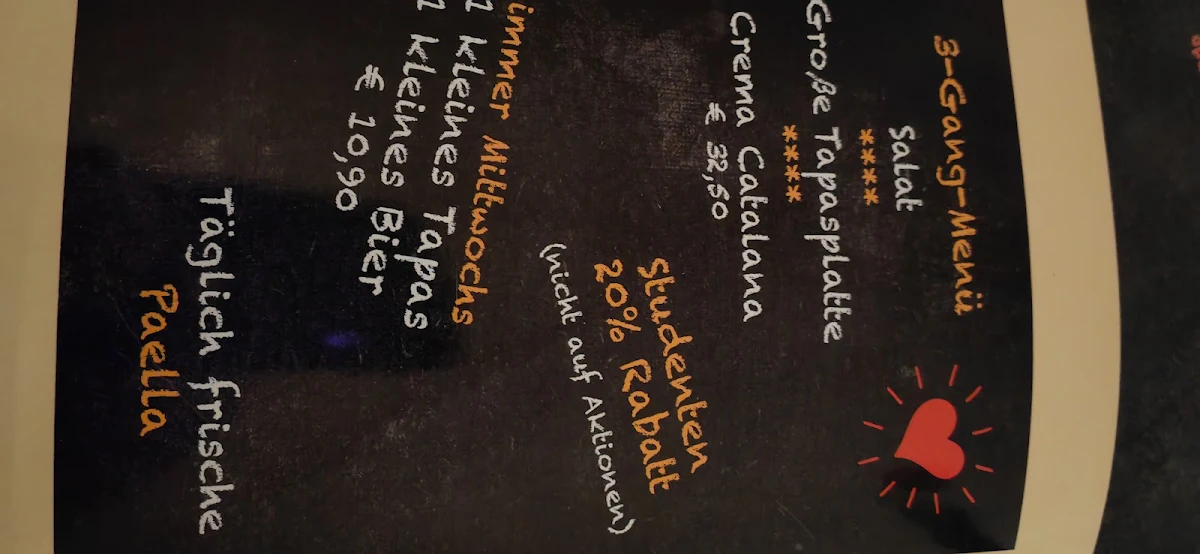 3-Gang-Menü
Salat
****
Große Tapasplatte
****
Crema Catalana
€ 32,50
Studenten
20% Rabatt
(nicht auf Aktionen)
immer Mittwochs
1 kleines Tapas
1 kleines Bier
€ 10,90
Täglich frische
Paella